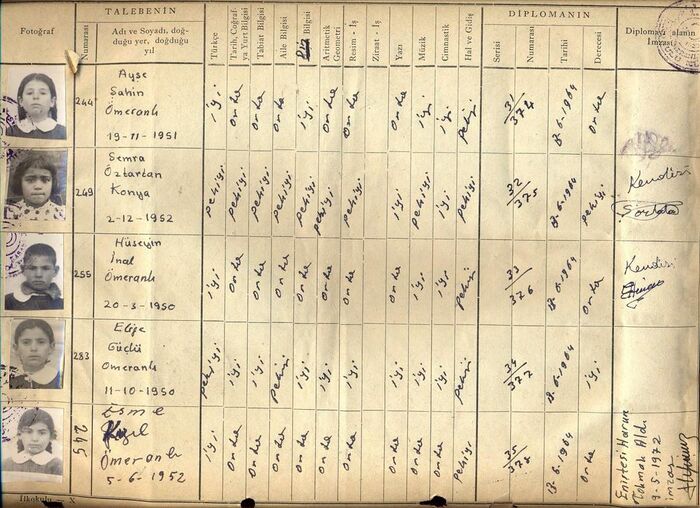 Fotoğraf
TALEBENİN
Numarası
Adı ve Soyadı, doğ-
duğu yer, doğduğu
yıl
Türkçe
Tarih, Coğraf-
ya Yurt Bilgisi
Tabiat Bilgisi
Aile Bilgisi
Bilgisi
Aritmetik
Geometri
Resim - İş
Ziraat - İş
Yazı
Müzik
Cimnastik
Hal ve Gidiş
DİPLOMANIN
Serisi
Numarası
Tarihi
Derecesi
Diplomayı alanın
İmzası
244
Ayşe
Şahin
Ömeranlı
19-11-1951
iyi orta orta orta iyi orta orta orta iyi iyi pekiyi
31/374
8-6-1964
orta
249
Semra
Öztartan
Konya
2-12-1952
pekiyi pekiyi pekiyi pekiyi pekiyi pekiyi pekiyi pekiyi iyi iyi pekiyi
32/375
8-6-1964
pekiyi
Kendisi
255
Hüseyin
İnal
Ömeranlı
20-3-1950
iyi orta orta orta orta orta orta orta iyi iyi pekiyi
33/376
8-6-1964
orta
Kendisi
283
Elife
Güçlü
Ömeranlı
11-10-1950
pekiyi iyi iyi pekiyi iyi iyi iyi iyi iyi iyi pekiyi
34/377
8-6-1964
iyi
245
Esme
Kızıl
Ömeranlı
5-6-1952
iyi orta orta orta orta orta orta orta orta orta pekiyi
35/378
8-6-1964
orta
Eniştesi Harun
Tokmak Aldı
9-5-1972
imzası
İlkokulu — X